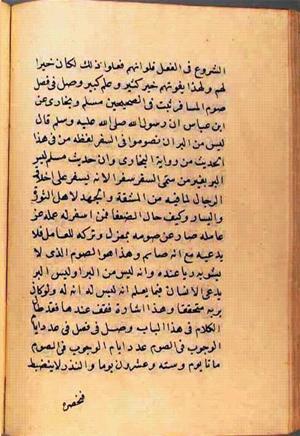 الشروع فى الفعل فلو انهم فعلوا ذلك لكان خيرا
لهم ولهذا يفوتهم خير كثير وعلم كبير وصل فى فصل
صوم المسافر ثبت فى الصحيحين مسلم وبخارى عن
ابن عباس ان رسول الله صلى الله عليه وسلم قال
ليس من البر ان تصوموا فى السفر لفظه من فى هذا
الحديث من رواية البخارى وان حديث مسلم ليس
البر بغير من سمى السفر سفرا الا نه يسفر على اخلاق
الرجال لما فيه من المشقة والجهد لاهل الثروة
واليسار وكيف حال الضعفا فمن اسفر له عمله عن
عامله صار عن صومه بمعزل وتركه للعامل فلا
يدعيه مع انه صائم وهذا هو الصوم الذى لا
يشوبه ريا عنده وانه ليس من البر اوليس البر ان
يدعى الانسان فيما يعلم انه ليس له انه له ولو كان
بربه متحققا وهذا اشارة فقف عندها فقد طال
الكلام فى هذا الباب وصل فى فصل فى عدد ايام
الوجوب فى الصوم عدد ايام الوجوب فى الصوم
ماتا يوم وسته وعشرون يوما والنذر لا ينضبط
فنحصره